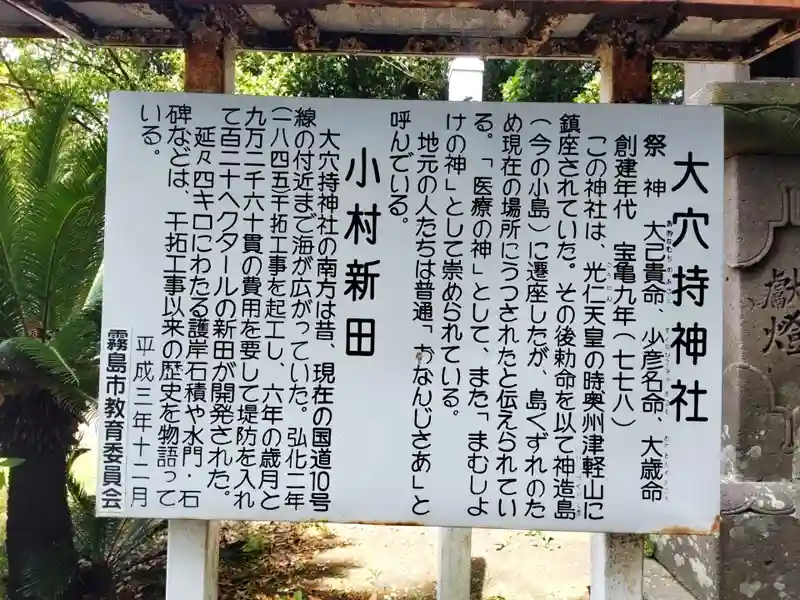 大穴持神社
祭神 大己貴命、少彦名命、大歳命
創建年代 宝亀九年(七七八)
この神社は、光仁天皇の時奥州津軽山に
鎮座されていた。その後勅命を以て神造島
(今の小島)に遷座したが、島くずれのた
め現在の場所にうつされたと伝えられてい
る。「医療の神」として、また「まむしよ
けの神」として崇められている。
地元の人たちは普通「おなんじさあ」と
呼んでいる。
小村新田
大穴持神社の南方は昔、現在の国道10号
線の付近まで海が広がっていた。弘化二年
(一八四五干拓工事を起工し、六年の歳月と
九万二千六十貫の費用を要して堤防を入れ
て百二十ヘクタールの新田が開発された。
延々四キロにわたる護岸石積や水門・石
碑などは、干拓工事以来の歴史を物語って
いる。
平成三年十二月
霧島市教育委員会
献燈